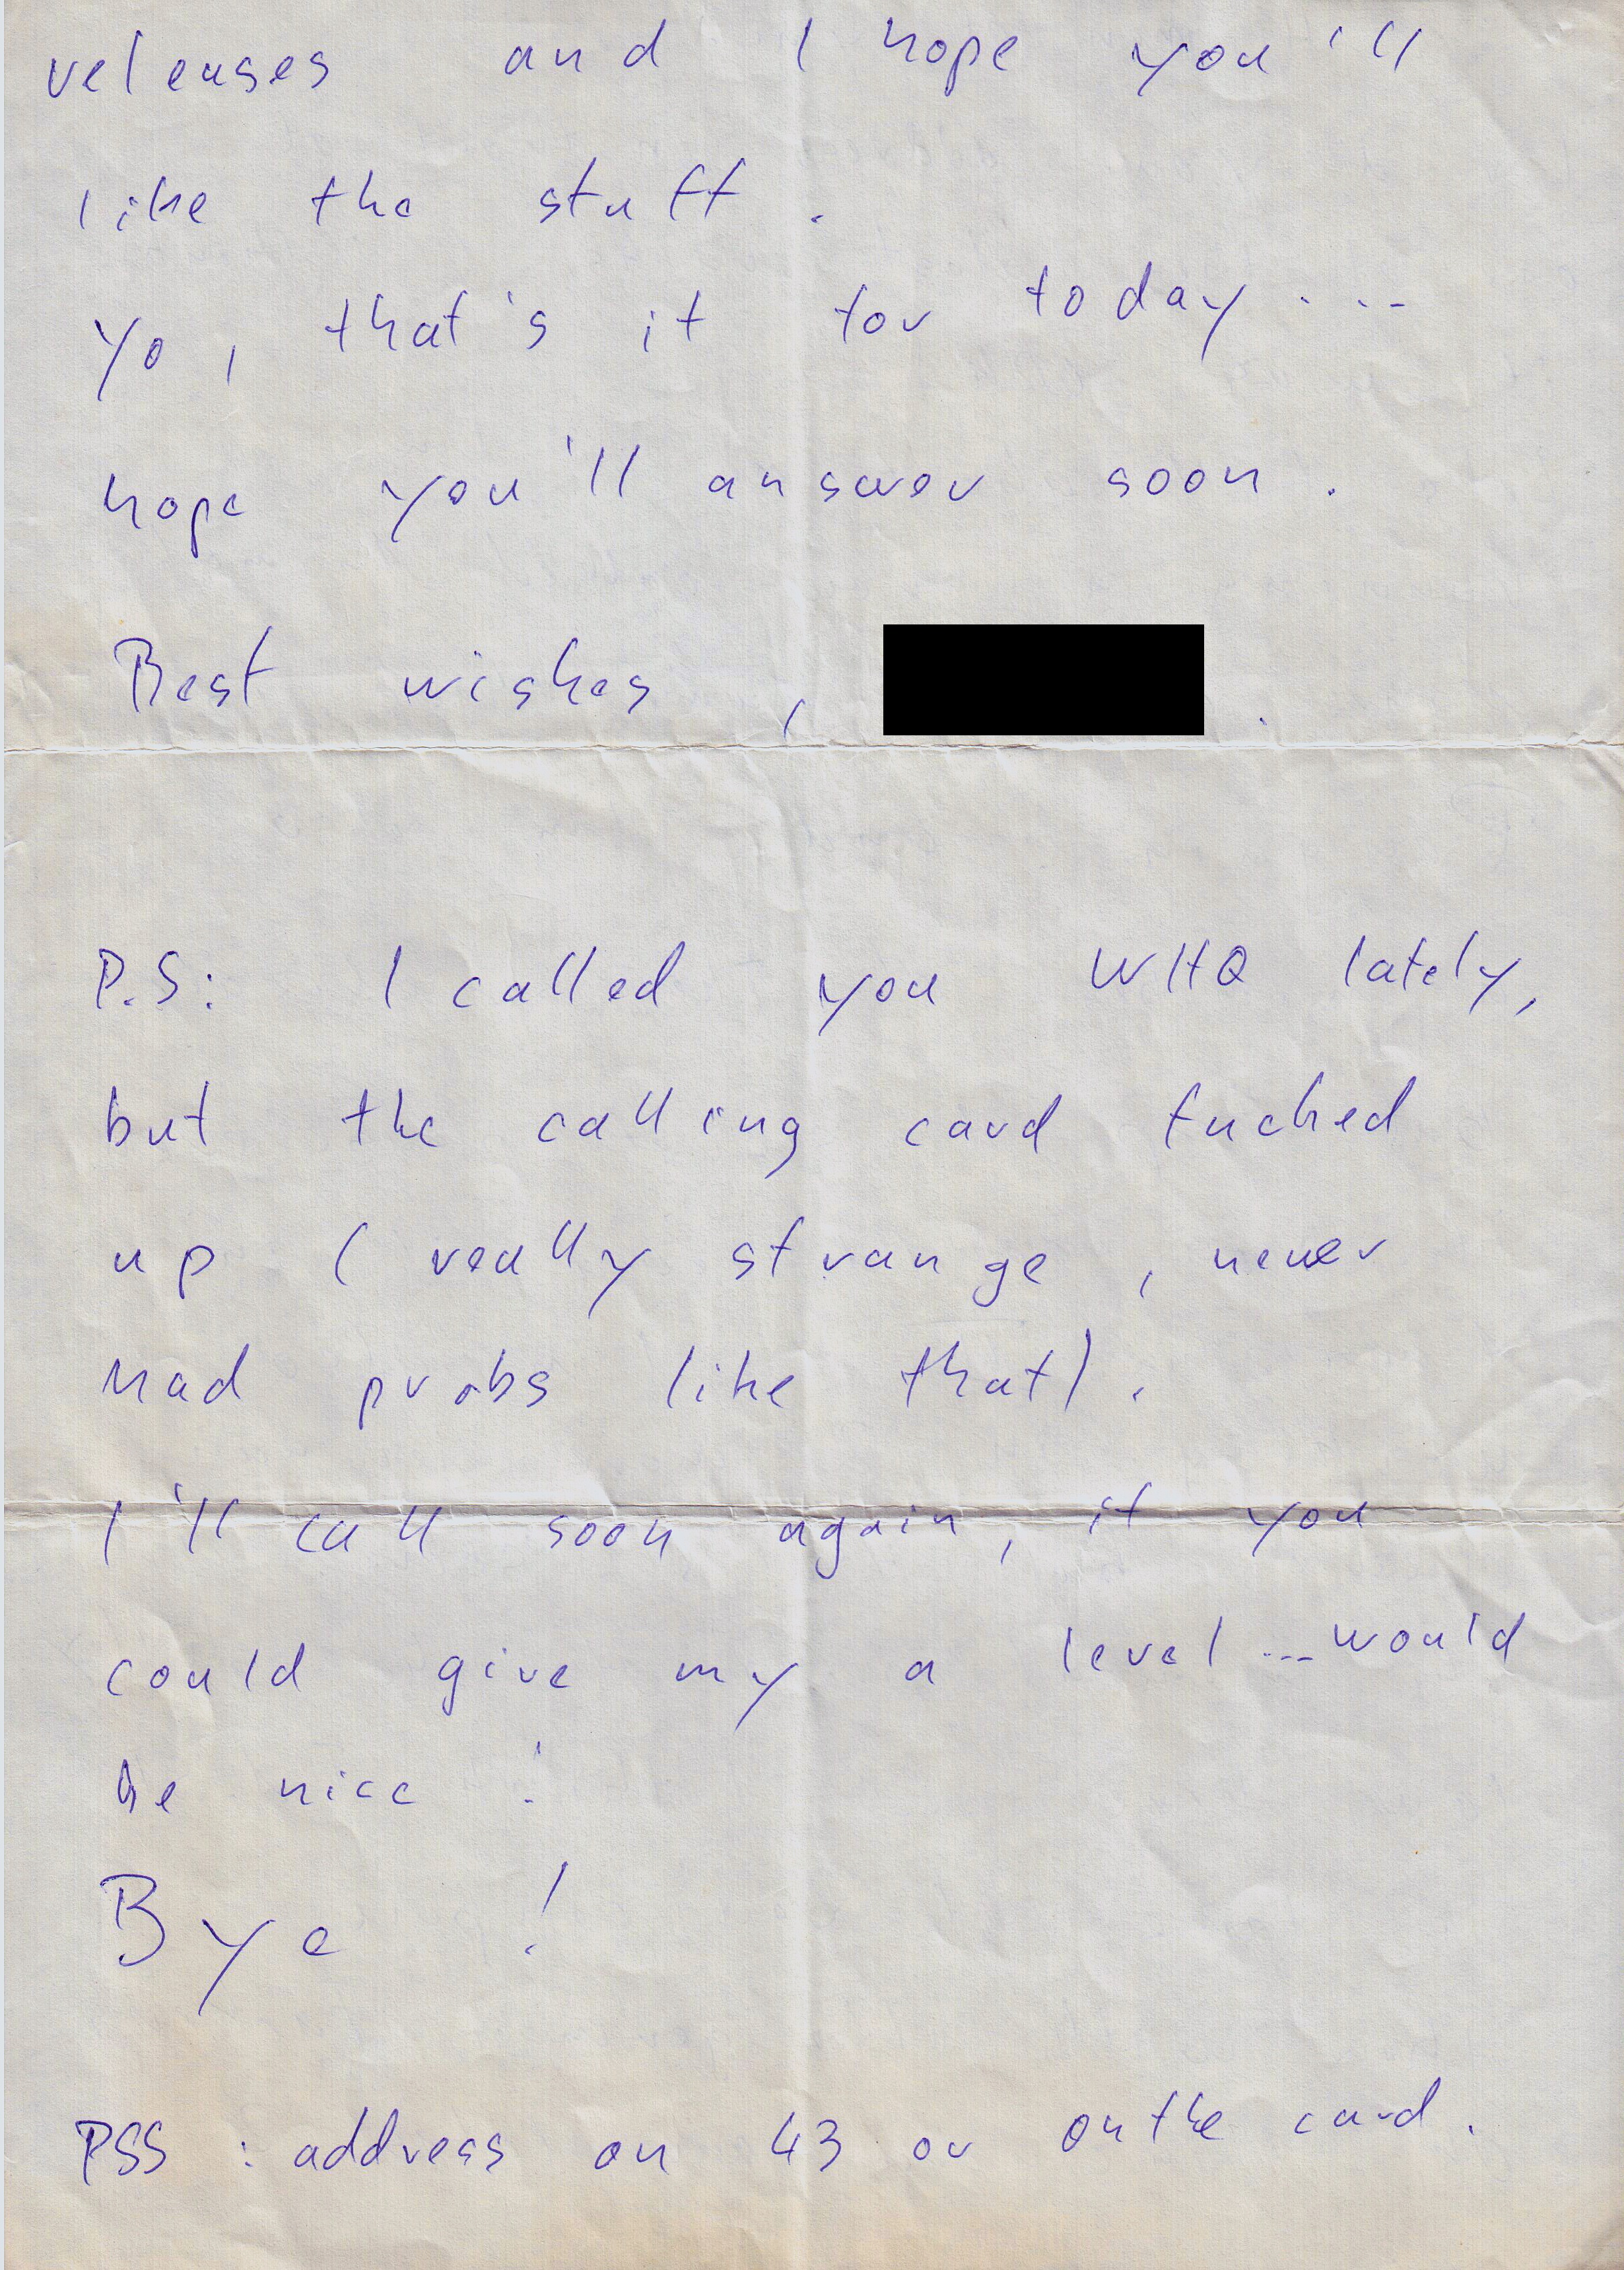 releases and I hope you'll
like the stuff.
Yo, that's it for today...
hope you'll answer soon.
Best wishes, .
P.S: I called you WHQ lately,
but the calling card fucked
up (really strange, never
had probs like that).
I'll call soon again, if you
could give my a level...would
be nice!
Bye!
PSS: address on 43 or on the card.